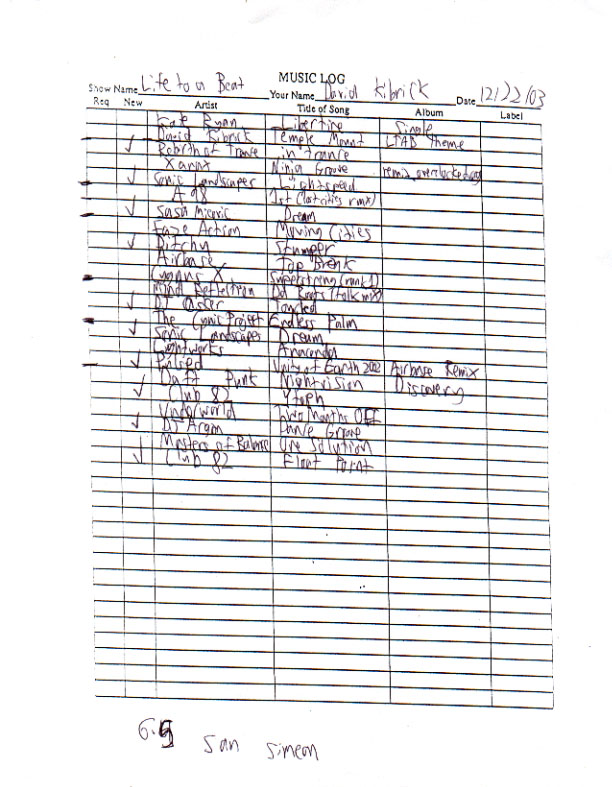 MUSIC LOG
Show Name Life to a Beat Your Name David Kibrick Date 12/22/03
Req New Artist Title of Song Album Label
Kate Ryan Libertine Single
✓ David Kibrick Temple Mount LTAB Theme
Robbthat Trance in trance
✓ Xanax Ninja Groove remix.overclocked.org
Sonic Landscapes Lightspeed
✓ A 98 1st (lost cities rmx)
Sasa Micovic Dream
✓ Faze Action Moving Cities
Ditchy Stumper
Airbase Top Break
Cygnus X Superstring (rank 1)
✓ Mind Reflection Dub Roots (talk mix)
DJ Oster Touched
✓ The Cynic Project Endless Palm
Sonic Landscapes Dream
Lightworks Anaconda
✓ Pulsed Unity of Earth 2002 Airbase Remix
Daft Punk Nightvision Discovery
✓ Club 82 Ytoph
Underworld Two Months Off
✓ DJ Argon Dance Groove
Masters of Balance One Solution
✓ Club 82 Float Point
6.5 San Simeon